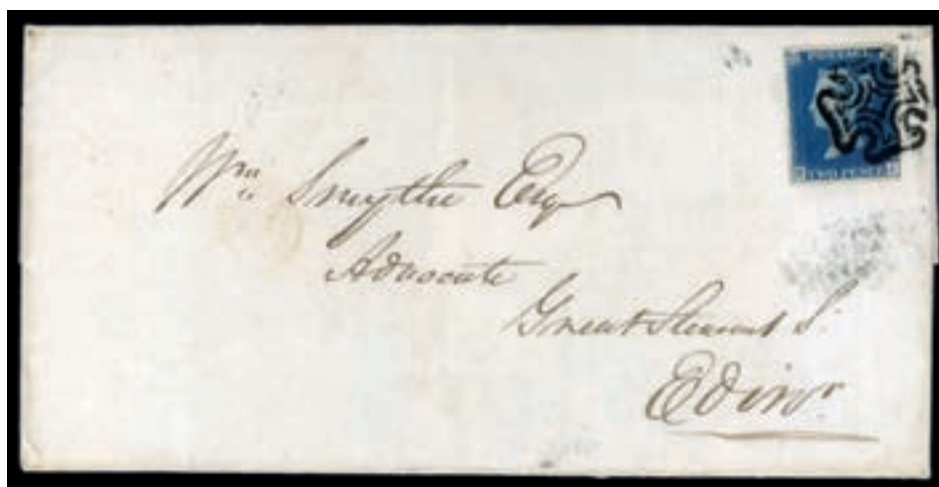 POSTAGE
TWO PENCE
Wm Smythe Esqr
Advocate
Great Stewart St
Edinr